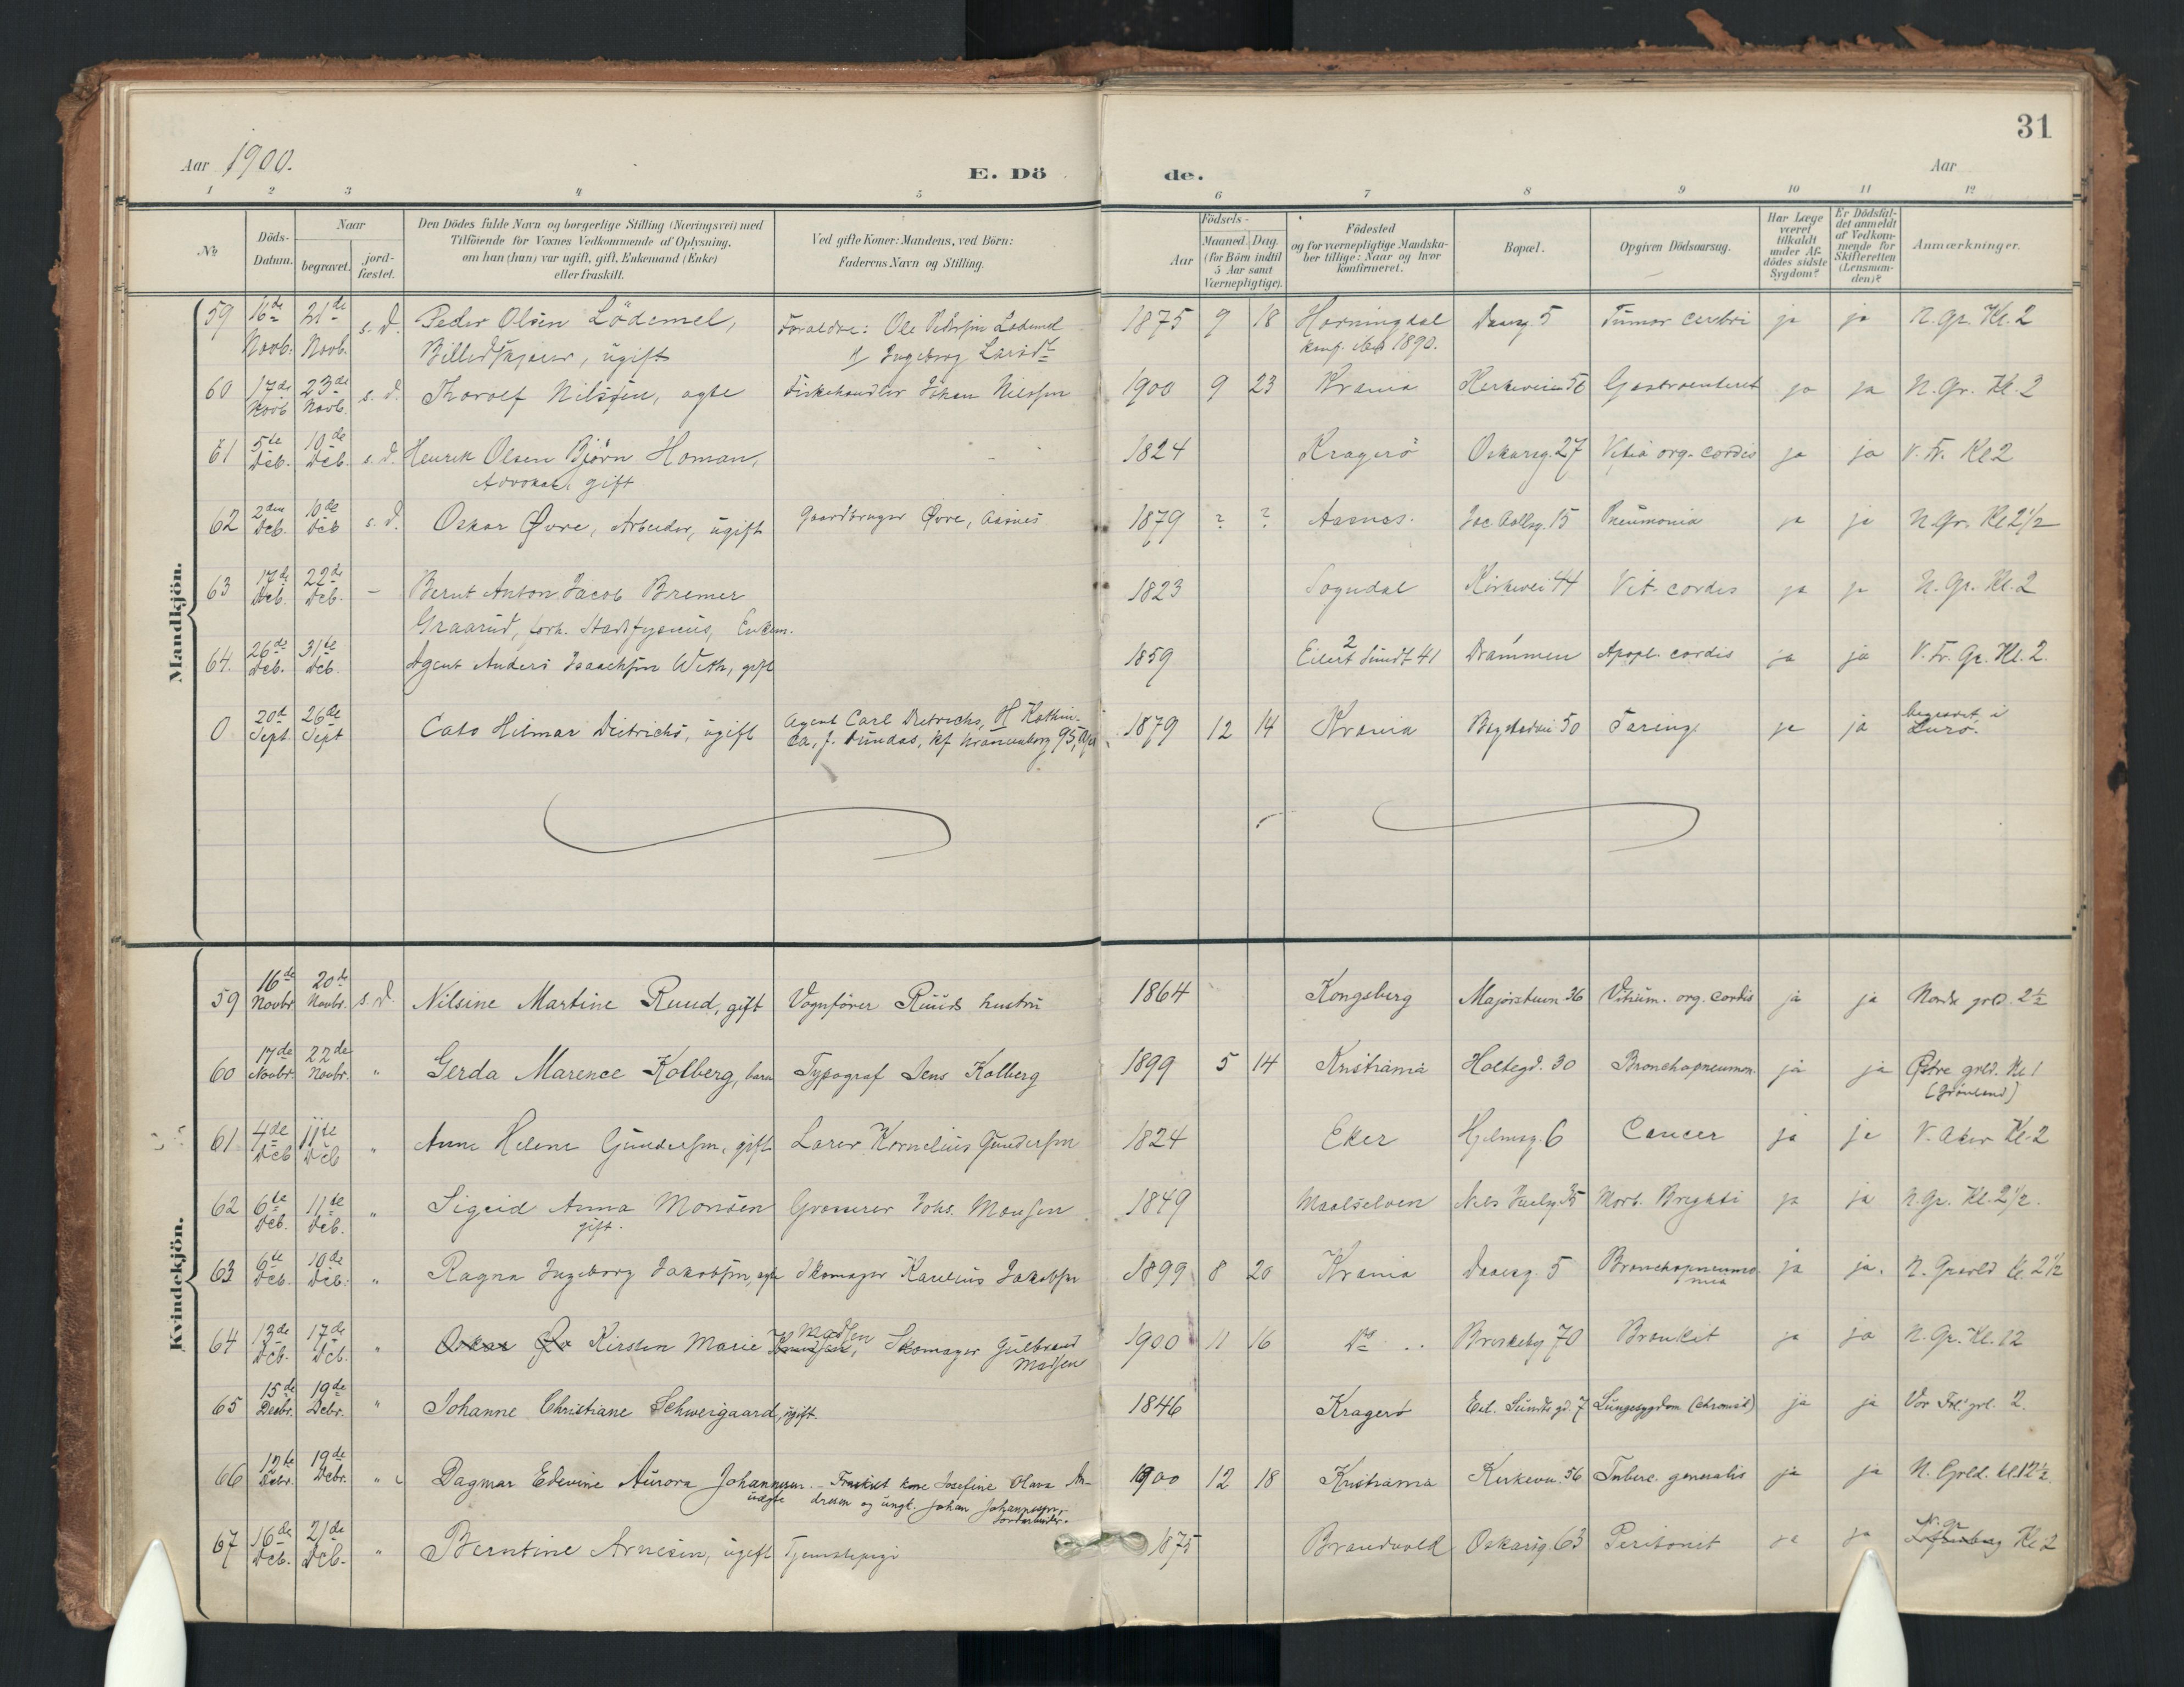 31
Aar 1900.
E. Dö de.
Aar
1 2 3 4 5 6 7 8 9 10 11 12
No.
Döds-Datum.
Naar
begravet.
jord-fæstet.
Den Dödes fulde Navn og borgerlige Stilling (Næringsvei) med
Tilföiende for Voxnes Vedkommende af Oplysning,
om han (hun) var ugift, gift, Enkemand (Enke)
eller fraskilt.
Ved gifte Koner: Mandens, ved Börn:
Faderens Navn og Stilling.
Födsels-
Aar
Maaned. Dag.
(for Börn indtil
5 Aar samt
Værnepligtige).
Födested
og for værnepligtige Mandska-
ber tillige: Naar og hvor
konfirmeret.
Bopæl.
Opgiven Dödsaarsag.
Har Læge
været
tilkaldt
under Af-
dödes sidste
Sygdom?
Er Dödsfal-
det anmeldt
af Vedkom-
mende for
Skifteretten
(Lensman-
den)?
Anmærkninger.
Mandkjön.
59 16de Novb. 21de Novb. s. d. Peder Olsen Lödemel, Forældre: Ole Pedersen Lødemel 1875 9 18 Horningdal Daasg 5 Tumor cerebri ja ja N. Gr. Kl. 2
ugift Ingeborg Larsdt konf. 1890.
60 17de Novb 23de Novb. s. d. Thorolf Nilssen, ægte Fiskehandler Johan Nilssen 1900 9 23 Krania Kirkeveien 56 Gastroenterit ja ja N. Gr. Kl. 2
61 5te Dcb. 10de Dcb. s. d. Henrik Olsen Björn Homan, 1824 Kragerö Oskarsg. 27 Vitia org. cordis ja ja V. Fr. Kl 2
Advokat, gift
62 2den Dcb. 10de Dcb s. d. Oskar Øvre, Arbeider, ugift Gaardbruger Øvre, Aasnes 1879 ? ? Aasnes. Jac Aallsg. 15 Pneumonia ja ja N. Gr. Kl 2 1/2
63 17de Dcb. 22de Dcb. - Bernt Anton Jacob Bremer 1823 Sogndal Kirkevei 44 Vit. cordis ja ja N. Gr. Kl. 2
Graarud, forh. Stadsfysicus, Enkem.
64. 26de Dcb. 31te Dcb. Agent Anders Isaachsen With, gift 1859 Eilert Sundt 41 2 Drammen Apopl. cordis ja ja V. Fr. Gr. Kl. 2.
0 20de Sept. 26de Sept Cato Hilmar Dietrichs, ugift Agent Carl Dietrichs, 1879 12 14 Krania Bogstadvei 50 ja ja begravet i
Kvindekjön.
59 16de Novbr 20de Novbr. s. d. Nilsine Martine Ruud, gift Vognfører Ruuds hustru 1864 Kongsberg Majorstuen 36 Vitium. org. cordis ja ja Nordr grld. 2 1/2
60 17de Novbr. 22de Novbr. " Gerda Marence Kolberg, barn Typograf Jens Kolberg 1899 5 14 Kristiania Holtegd. 30 Bronchopneumon. ja ja Østre grld. Kl 1
(Grønland)
61 4de Dcb 11te Dcb " Anne Helene Gundersen, gift Lærer Kornelius Gundersen 1824 Eker Hjelmsg. 6 Cancer ja ja V. Aker Kl. 2
62 6te Dcb. 11te Dcb. " Sigrid Anna Monsen Grosserer Johs. Monsen 1849 Maalselven Niels Juelsg. 35 Morb. Brightii ja ja N. Gr. Kl. 2 1/2.
gift.
63 6te Dcb. 10de Dcb. " Ragna Ingeborg Jakobsen, ægte Skomager Karelius Jakobsen 1899 8 20 Krania Daaesg. 5 Bronchopneumo- ja ja. N. Gravld Kl. 2 1/2
nia
64 13de Dcb. 17de Dcb. " Oskar Øv Kirsten Marie Madsen Skomager Gulbrand 1900 11 16 do Briskeby 70 Bronkit ja ja N. Gr. Kl. 12
Madsen
65 15de Decbr. 19de Debr. " Johanne Christiane Schweigaard, ugift. 1846 Kragerö Eil. Sundts gd. 7 Lungesygdom (chronisk) ja ja Vor Frl. grl. 2.
66 12te Debr. 19de Debr. " Dagmar Edevine Aurora Johannesen. - Fraskilt kone Josefine Olava An- 1900 12 18 Kristiania Kirkevn. 56 Tuberc. generalis ja ja N. Grld. kl 12 1/2
uægte dresen og ungk. Johan Johannesen,
67 16de Dcb. 21de Dcb. " Berntine Arnesen, ugift Tjenestepige 1875 Brandvold Oskarsg. 63 Peritonit ja ja N. Gr Kl 2